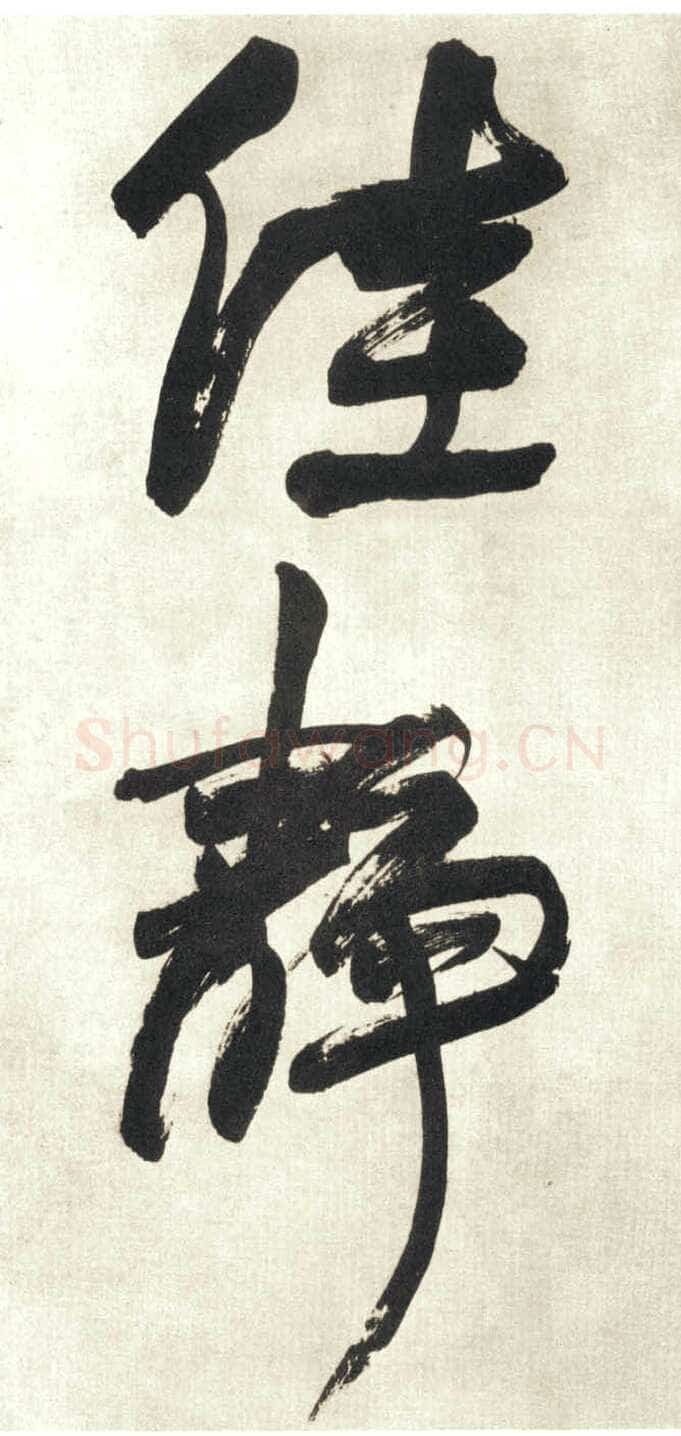 佳靜
Shufawang.CN